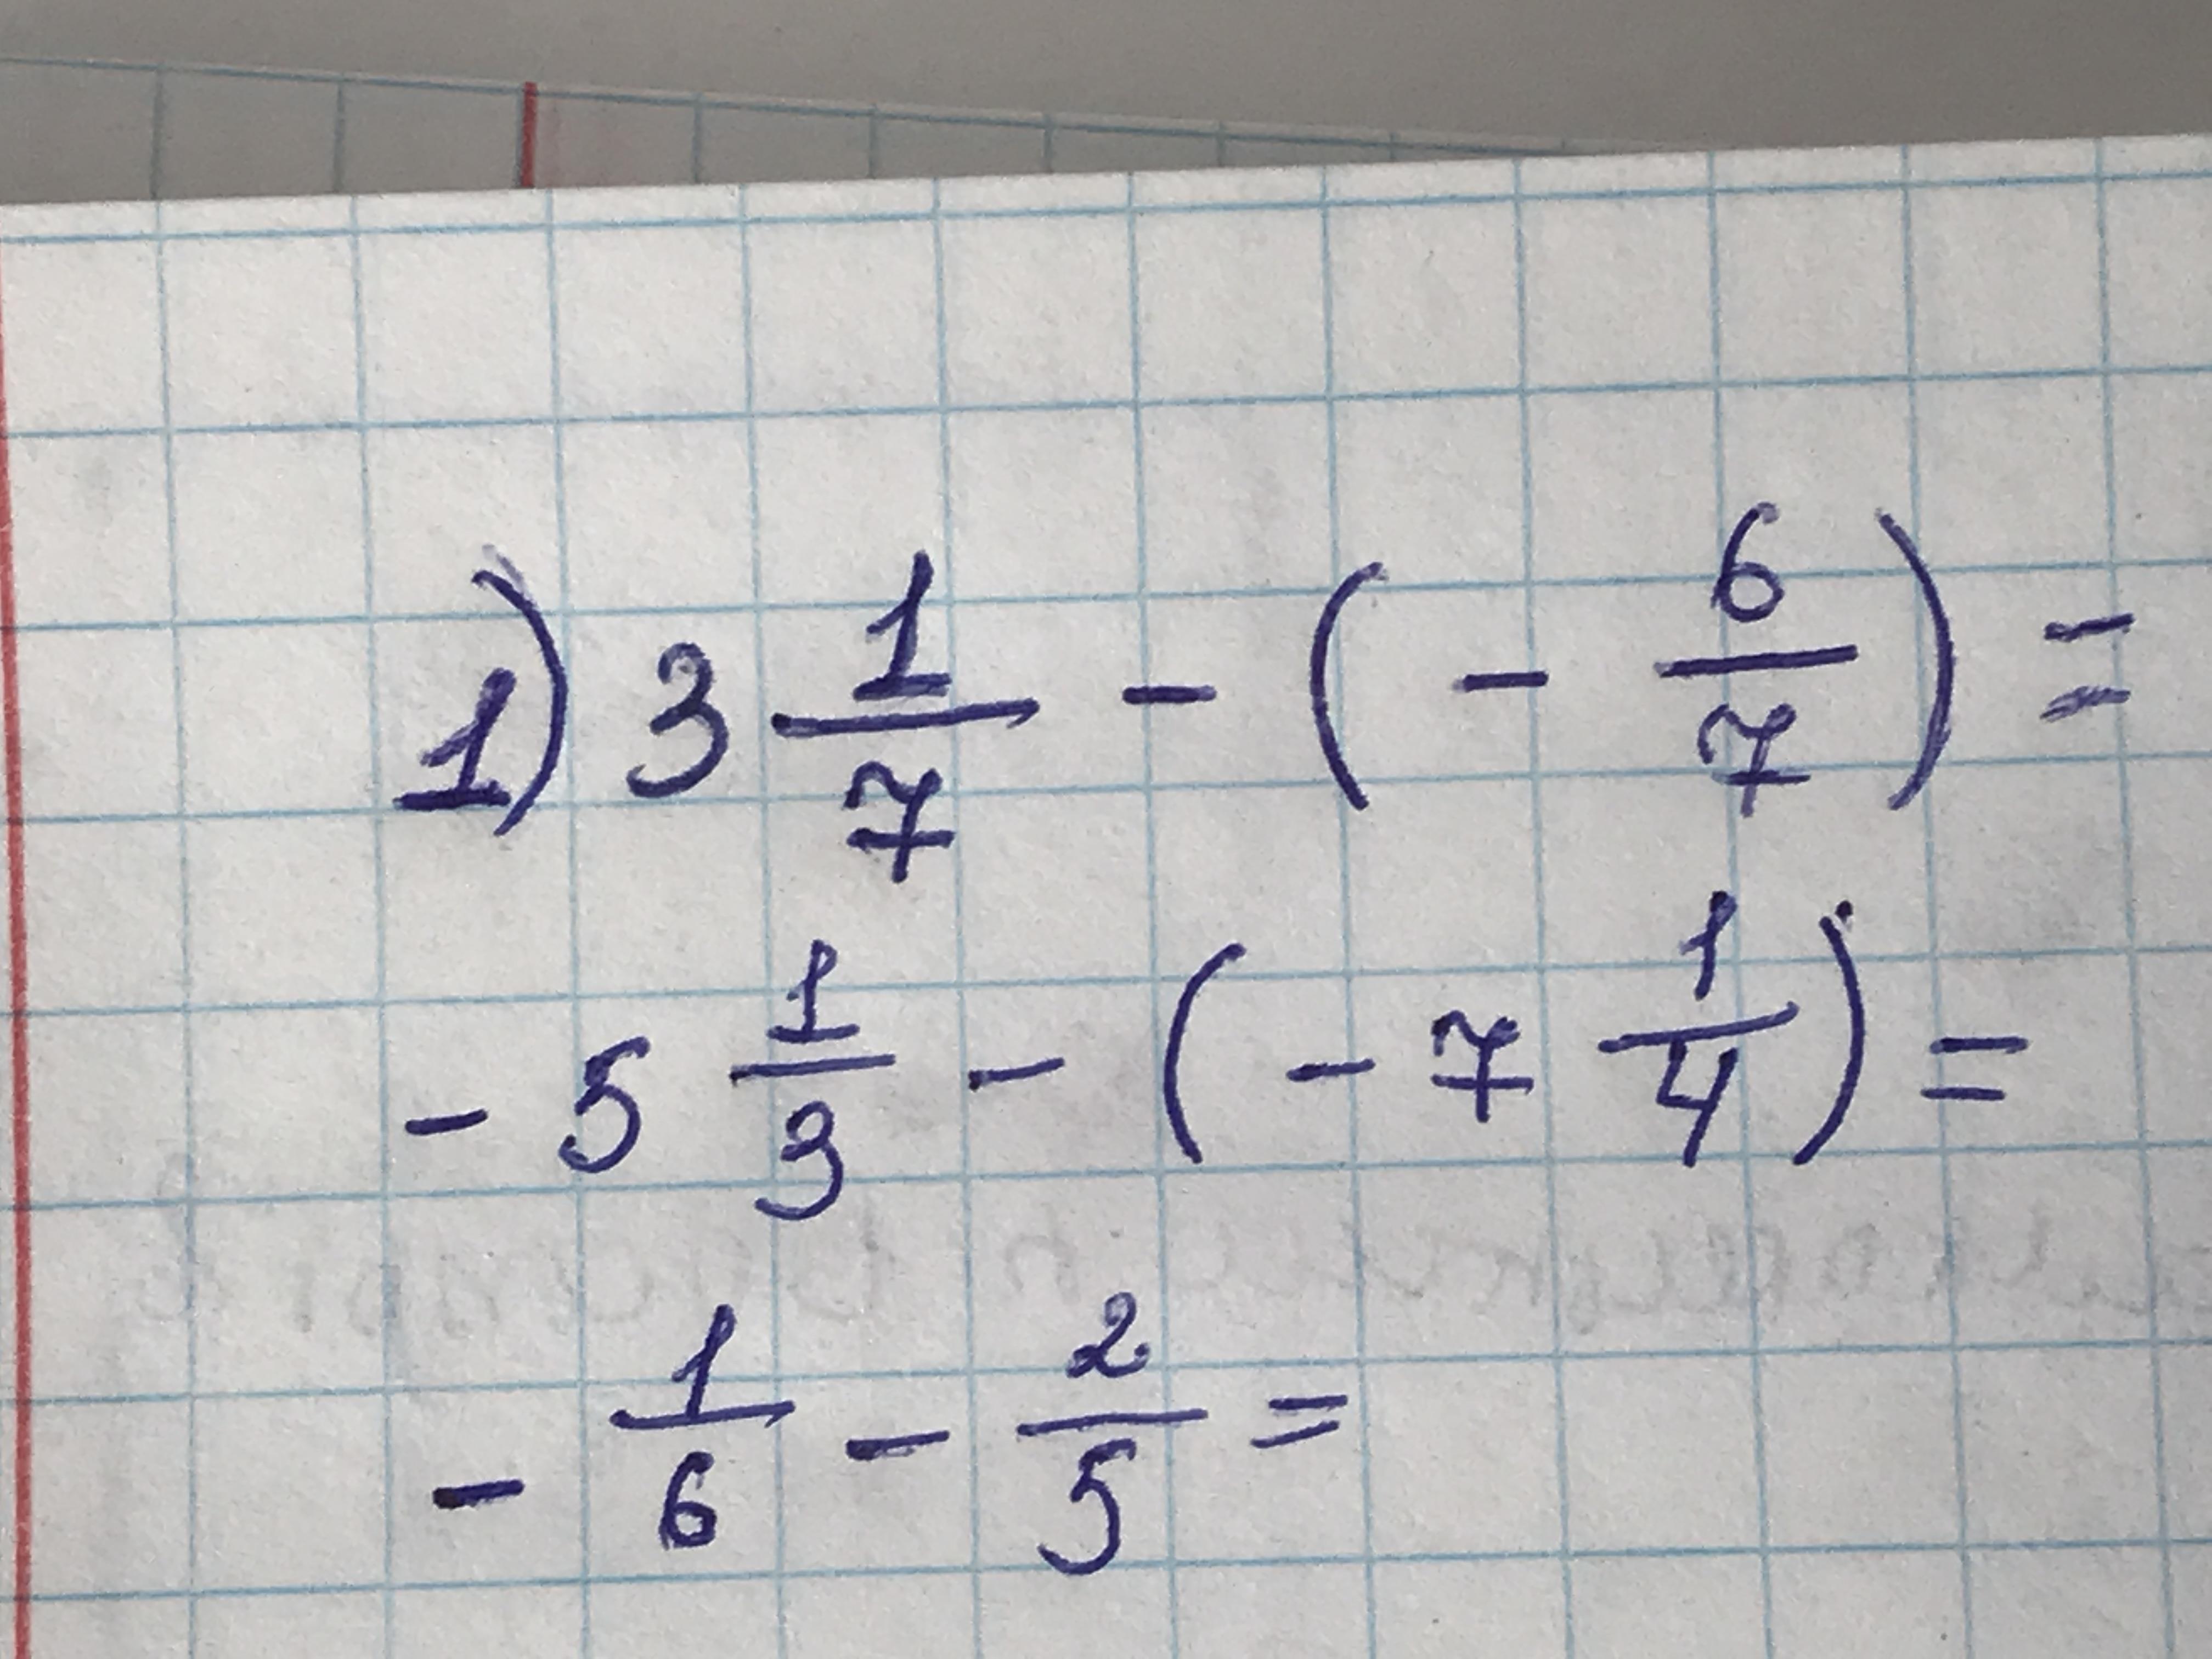 1) 3 1/7 - ( - 6/7 ) =
- 5 1/3 - ( - 7 1/4 ) =
- 1/6 - 2/5 =